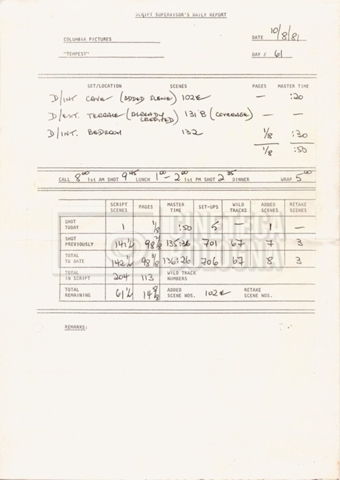 SCRIPT SUPERVISOR'S DAILY REPORT
COLUMBIA PICTURES
DATE 10/8/81
"TEMPEST"
DAY # 61
SET/LOCATION SCENES PAGES MASTER TIME
D/INT CAVE (ADDED SCENE) 102E — :20
D/EXT. TERRACE (ALREADY CREDITED) 131B (COVERAGE) — —
D/INT. BEDROOM 132 1/8 :30
1/8 :50
CALL 8:00 1st AM SHOT 9:05 LUNCH 1:00 - 2:00 1st PM SHOT 2:35 DINNER WRAP 5:00
SCRIPT SCENES PAGES MASTER TIME SET-UPS WILD TRACKS ADDED SCENES RETAKE SCENES
SHOT TODAY 1 1/8 :50 5 — 1 —
SHOT PREVIOUSLY 141½ 98 135:36 701 67 7 3
TOTAL TO DATE 142½ 98 136:26 706 67 8 3
TOTAL IN SCRIPT 204 113 WILD TRACK NUMBERS
TOTAL REMAINING 61½ 14 ADDED SCENE NOS. 102E RETAKE SCENE NOS.
CINETECA
BOLOGNA
REMARKS: